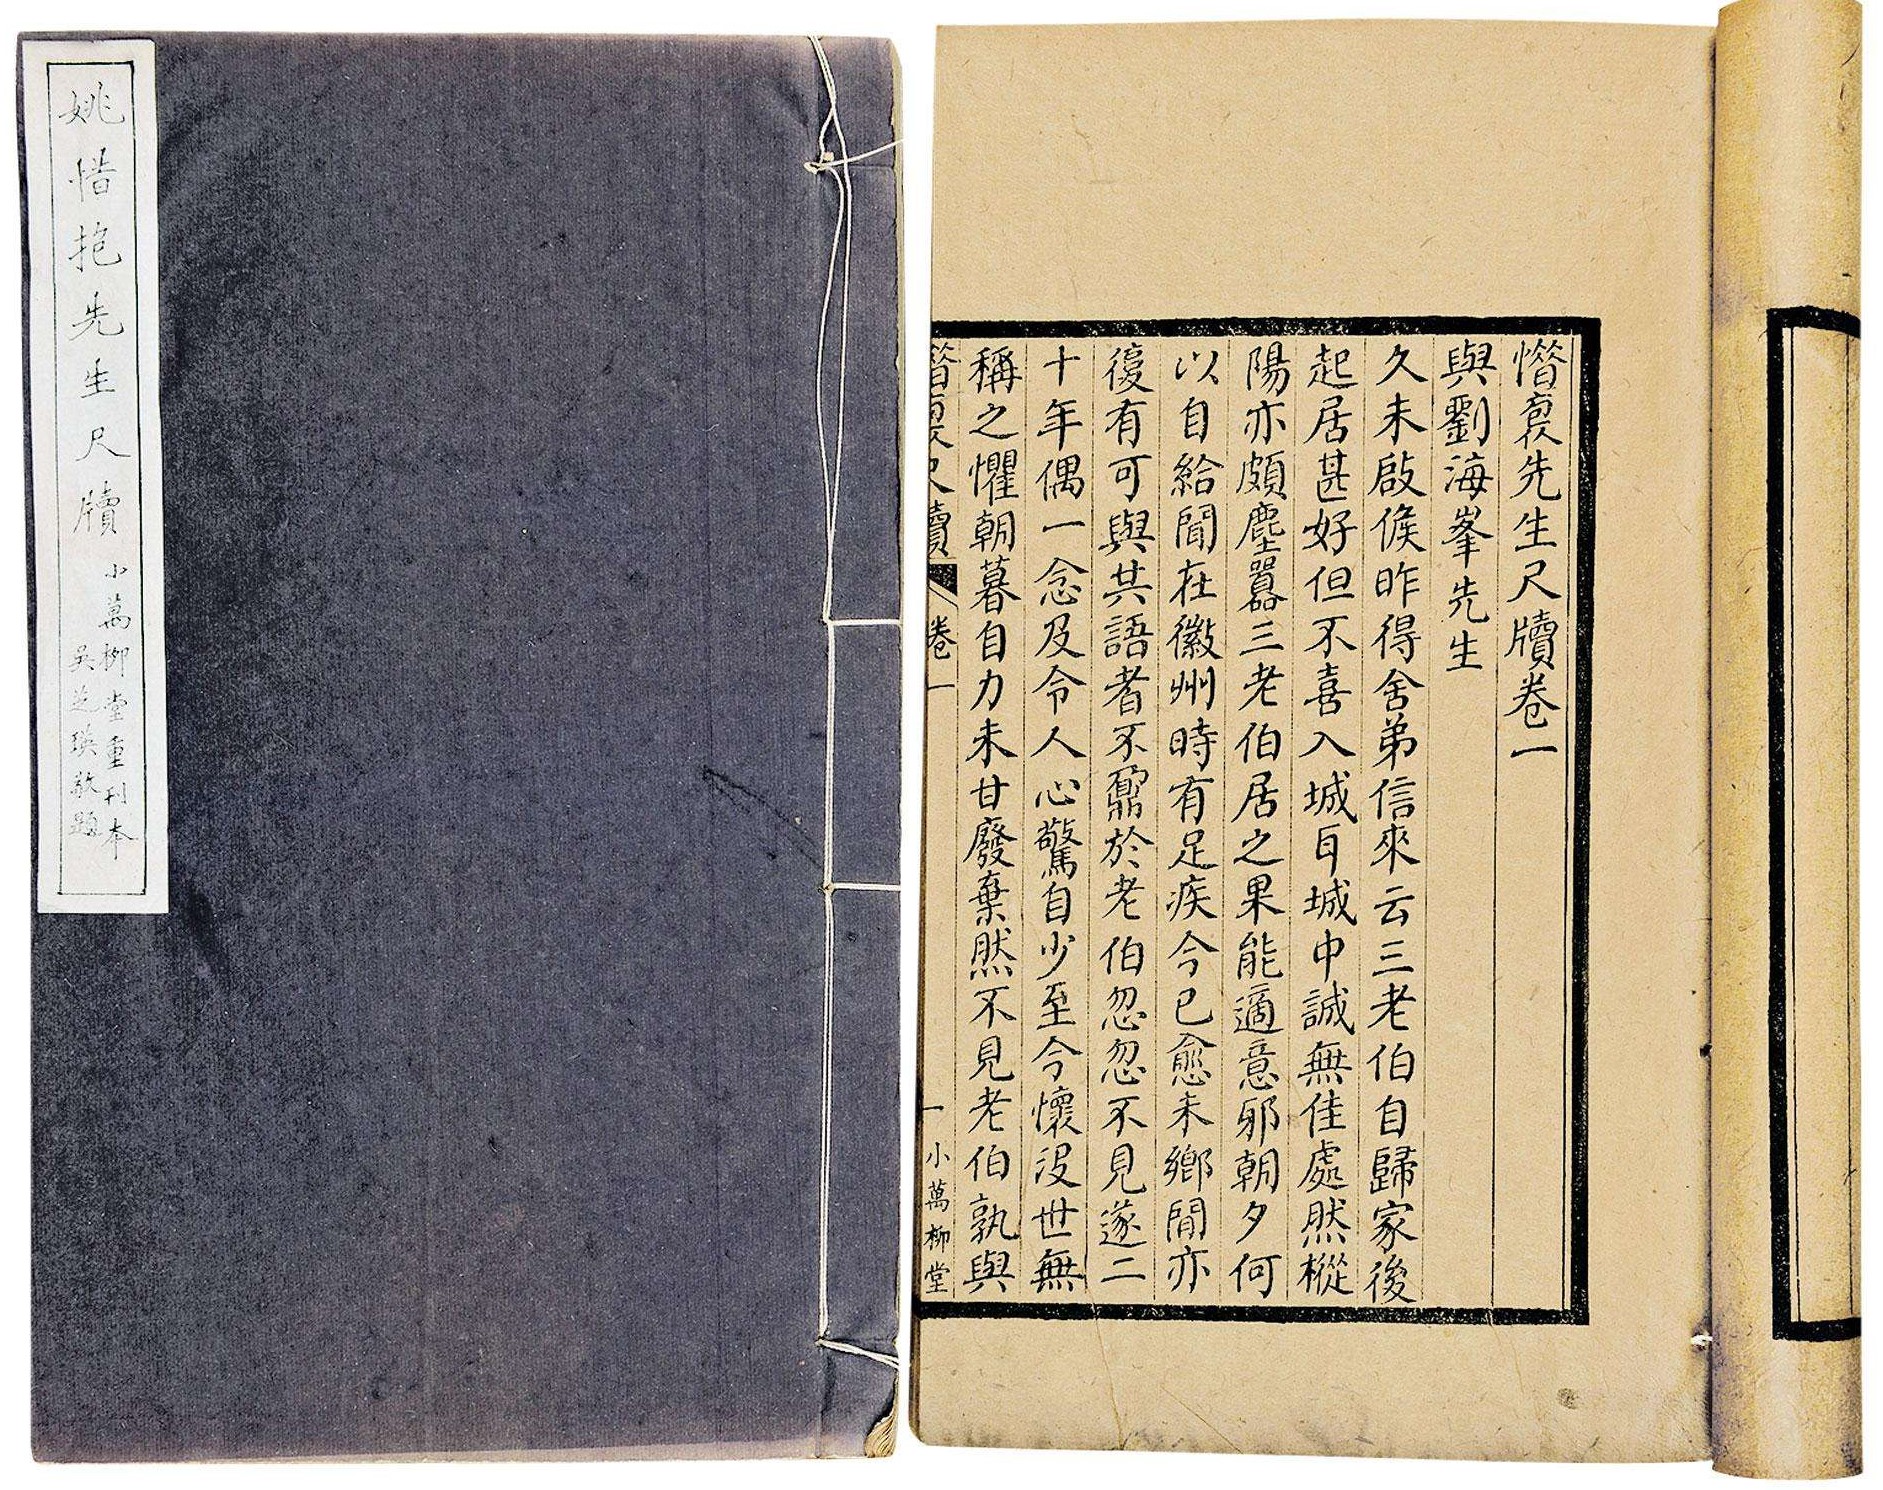 姚惜抱先生尺牘
小萬柳堂重刊本
吳芝瑛敬題
惜裒先生尺牘卷一
與劉海峯先生
久未啟候昨得舍弟信來云三老伯自歸家後
起居甚好但不喜入城耳城中誠無佳處然樅
陽亦頗塵囂三老伯居之果能適意邪朝夕何
以自給聞在徽州時有足疾今已愈未鄉閒亦
復有可與共語者不鼐於老伯忽忽不見遂二
十年偶一念及令人心驚自少至今懷沒世無
稱之懼朝暮自力未甘廢棄然不見老伯孰與
惜裒尺牘
卷一
一
小萬柳堂